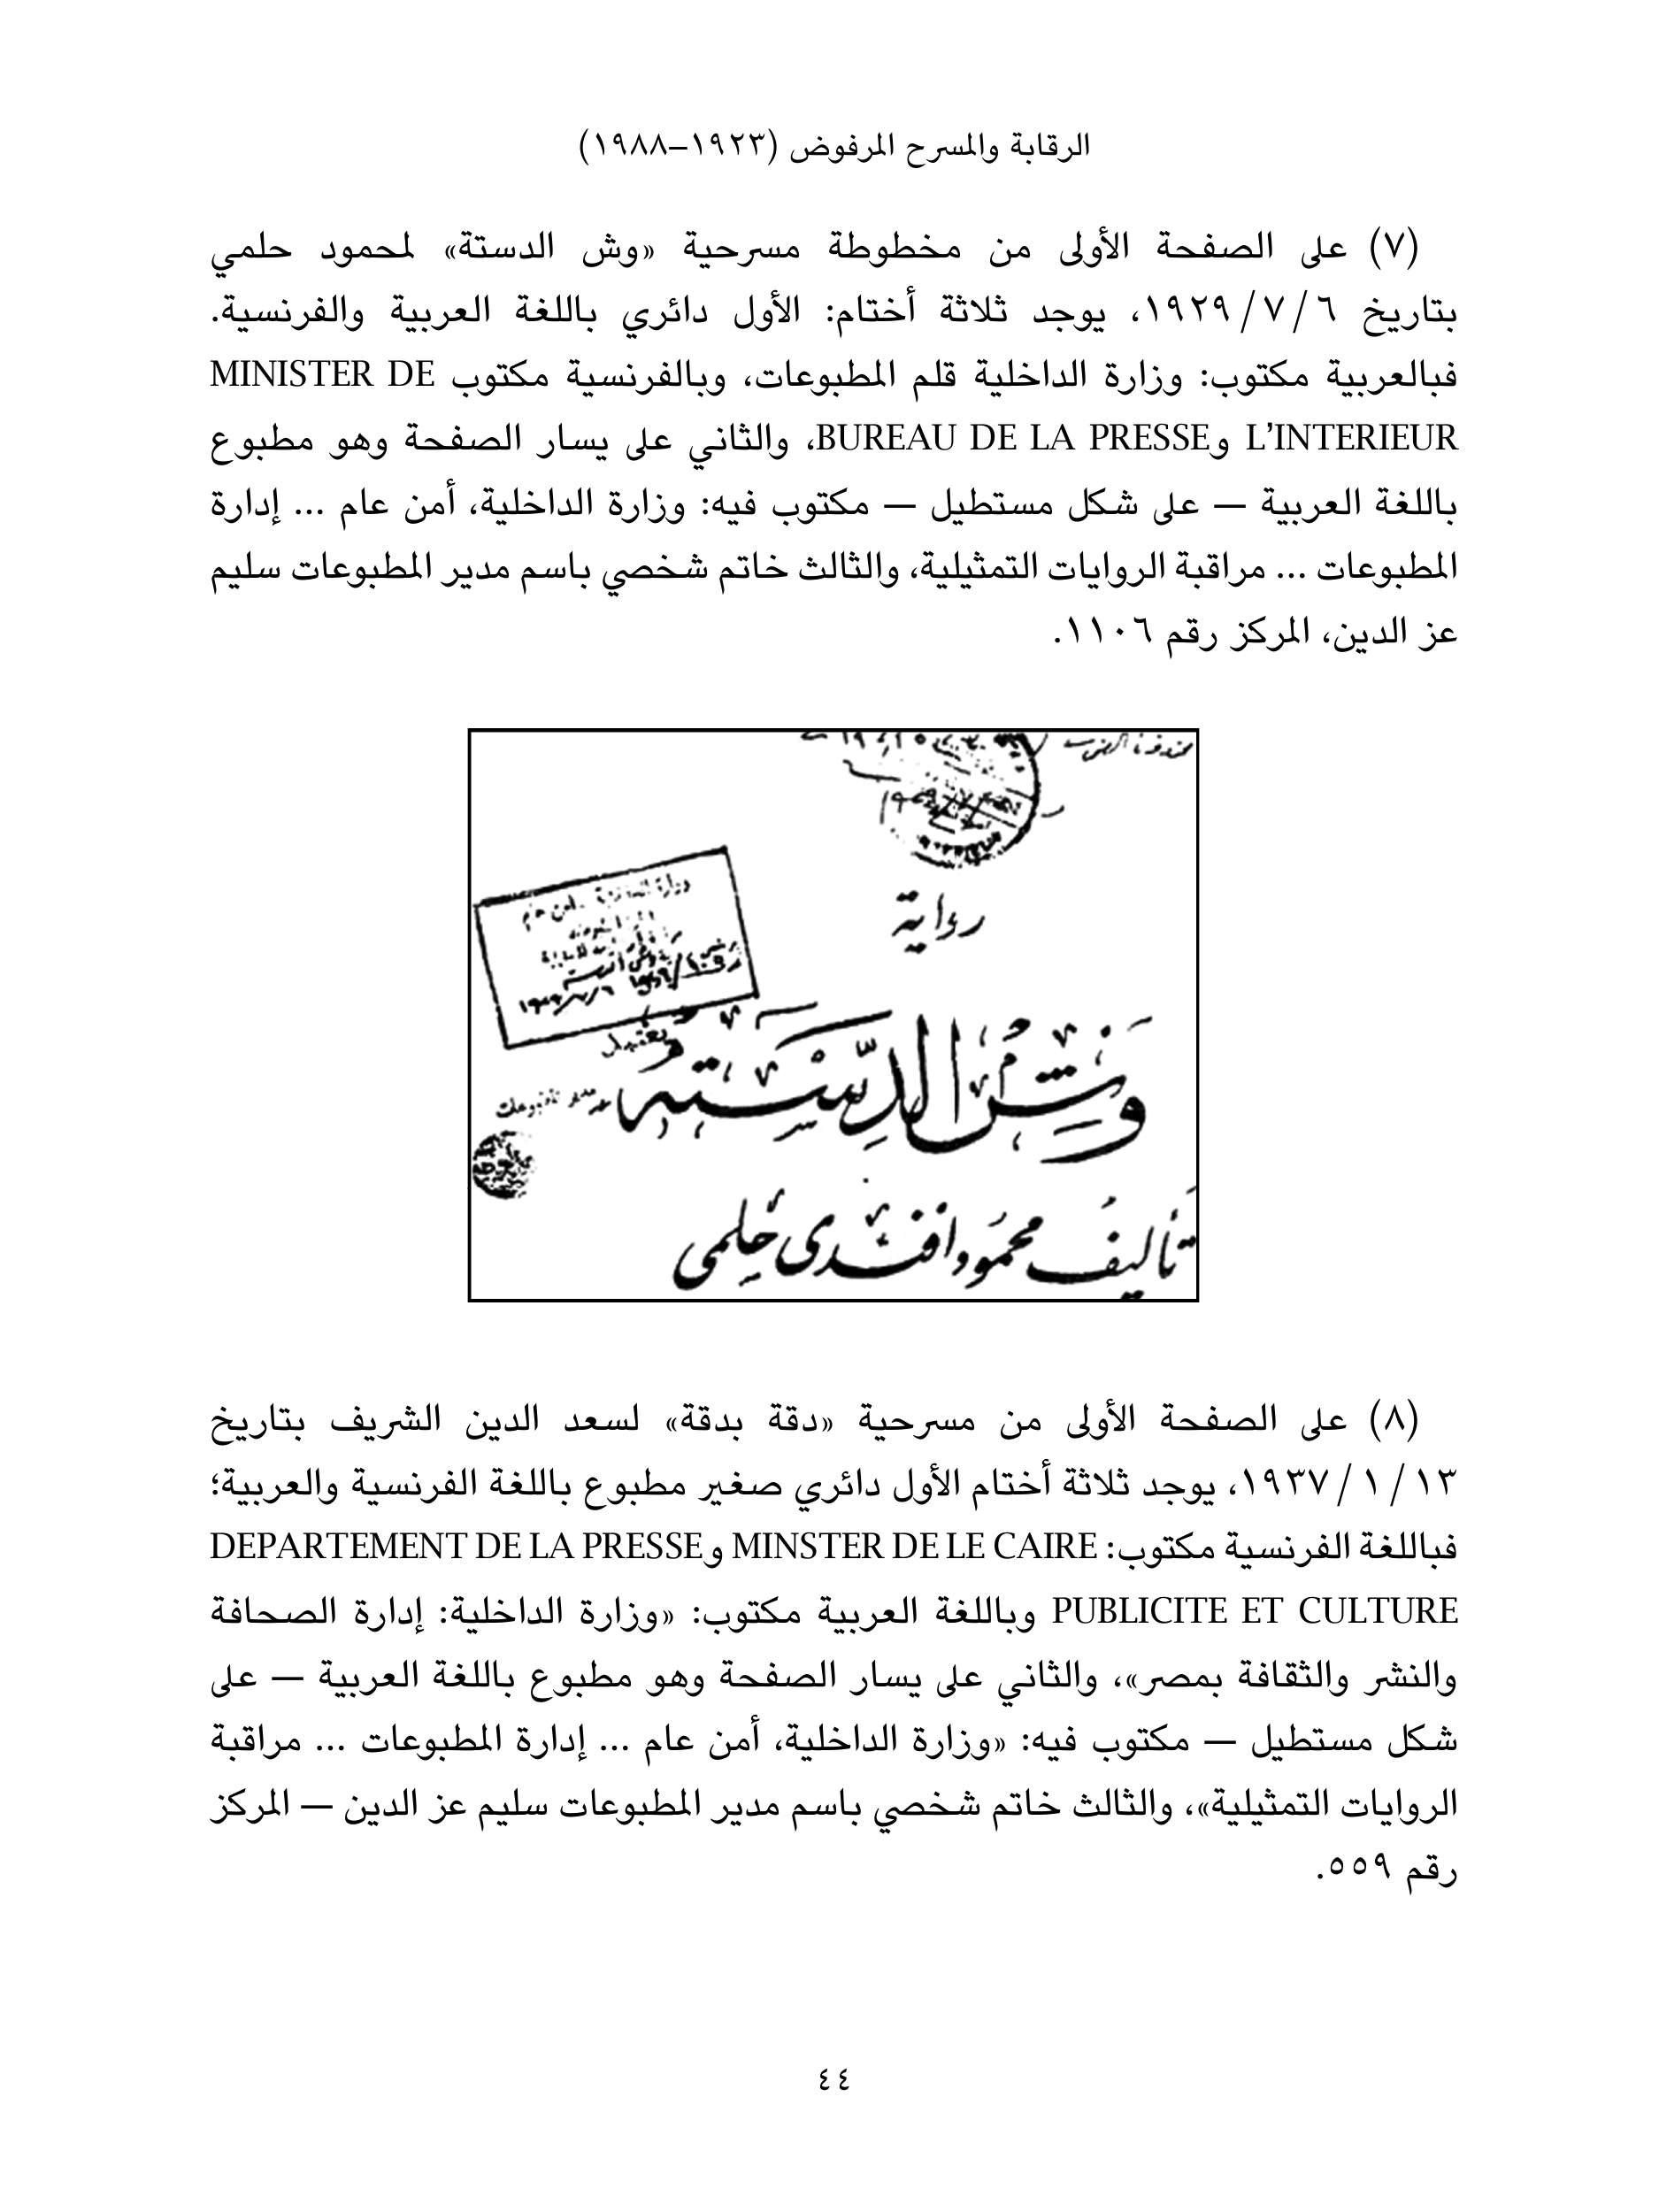 الرقابة والمسرح المرفوض (١٩٢٣–١٩٨٨)
(٧) على الصفحة الأولى من مخطوطة مسرحية «وش الدستة» لمحمود حلمي
بتاريخ ٦ / ٧ / ١٩٢٩، يوجد ثلاثة أختام: الأول دائري باللغة العربية والفرنسية.
فبالعربية مكتوب: وزارة الداخلية قلم المطبوعات، وبالفرنسية مكتوب MINISTER DE
L’INTERIEUR وBUREAU DE LA PRESSE، والثاني على يسار الصفحة وهو مطبوع
باللغة العربية — على شكل مستطيل — مكتوب فيه: وزارة الداخلية، أمن عام … إدارة
المطبوعات … مراقبة الروايات التمثيلية، والثالث خاتم شخصي باسم مدير المطبوعات سليم
عز الدين، المركز رقم ١١٠٦.
رواية
وش الدسته
تأليف محمود افندى حلمى
(٨) على الصفحة الأولى من مسرحية «دقة بدقة» لسعد الدين الشريف بتاريخ
١٣ / ١ / ١٩٣٧، يوجد ثلاثة أختام الأول دائري صغير مطبوع باللغة الفرنسية والعربية؛
فباللغة الفرنسية مكتوب: MINSTER DE LE CAIRE وDEPARTEMENT DE LA PRESSE
PUBLICITE ET CULTURE وباللغة العربية مكتوب: «وزارة الداخلية: إدارة الصحافة
والنشر والثقافة بمصر»، والثاني على يسار الصفحة وهو مطبوع باللغة العربية — على
شكل مستطيل — مكتوب فيه: «وزارة الداخلية، أمن عام … إدارة المطبوعات … مراقبة
الروايات التمثيلية»، والثالث خاتم شخصي باسم مدير المطبوعات سليم عز الدين — المركز
رقم ٥٥٩.
٤٤